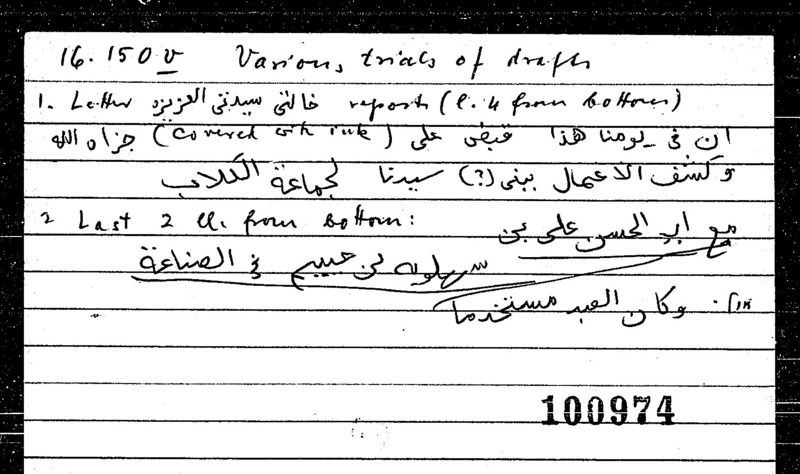 16.150 v Various trials of drafts
1. Letter خالتي سيدتي العزيزه reports (l. 4 from bottom)
ان في يومنا هذا قبض على (covered with ink) جزاه الله
وكشف الاعمال ببنى (?) سيدنا لجماعة الكلاب
2 Last 2 ll. from bottom: مع ابي الحسن علي بن
سهلويه بن حييم في الصناعة
وكان العبد مستخدما
100974